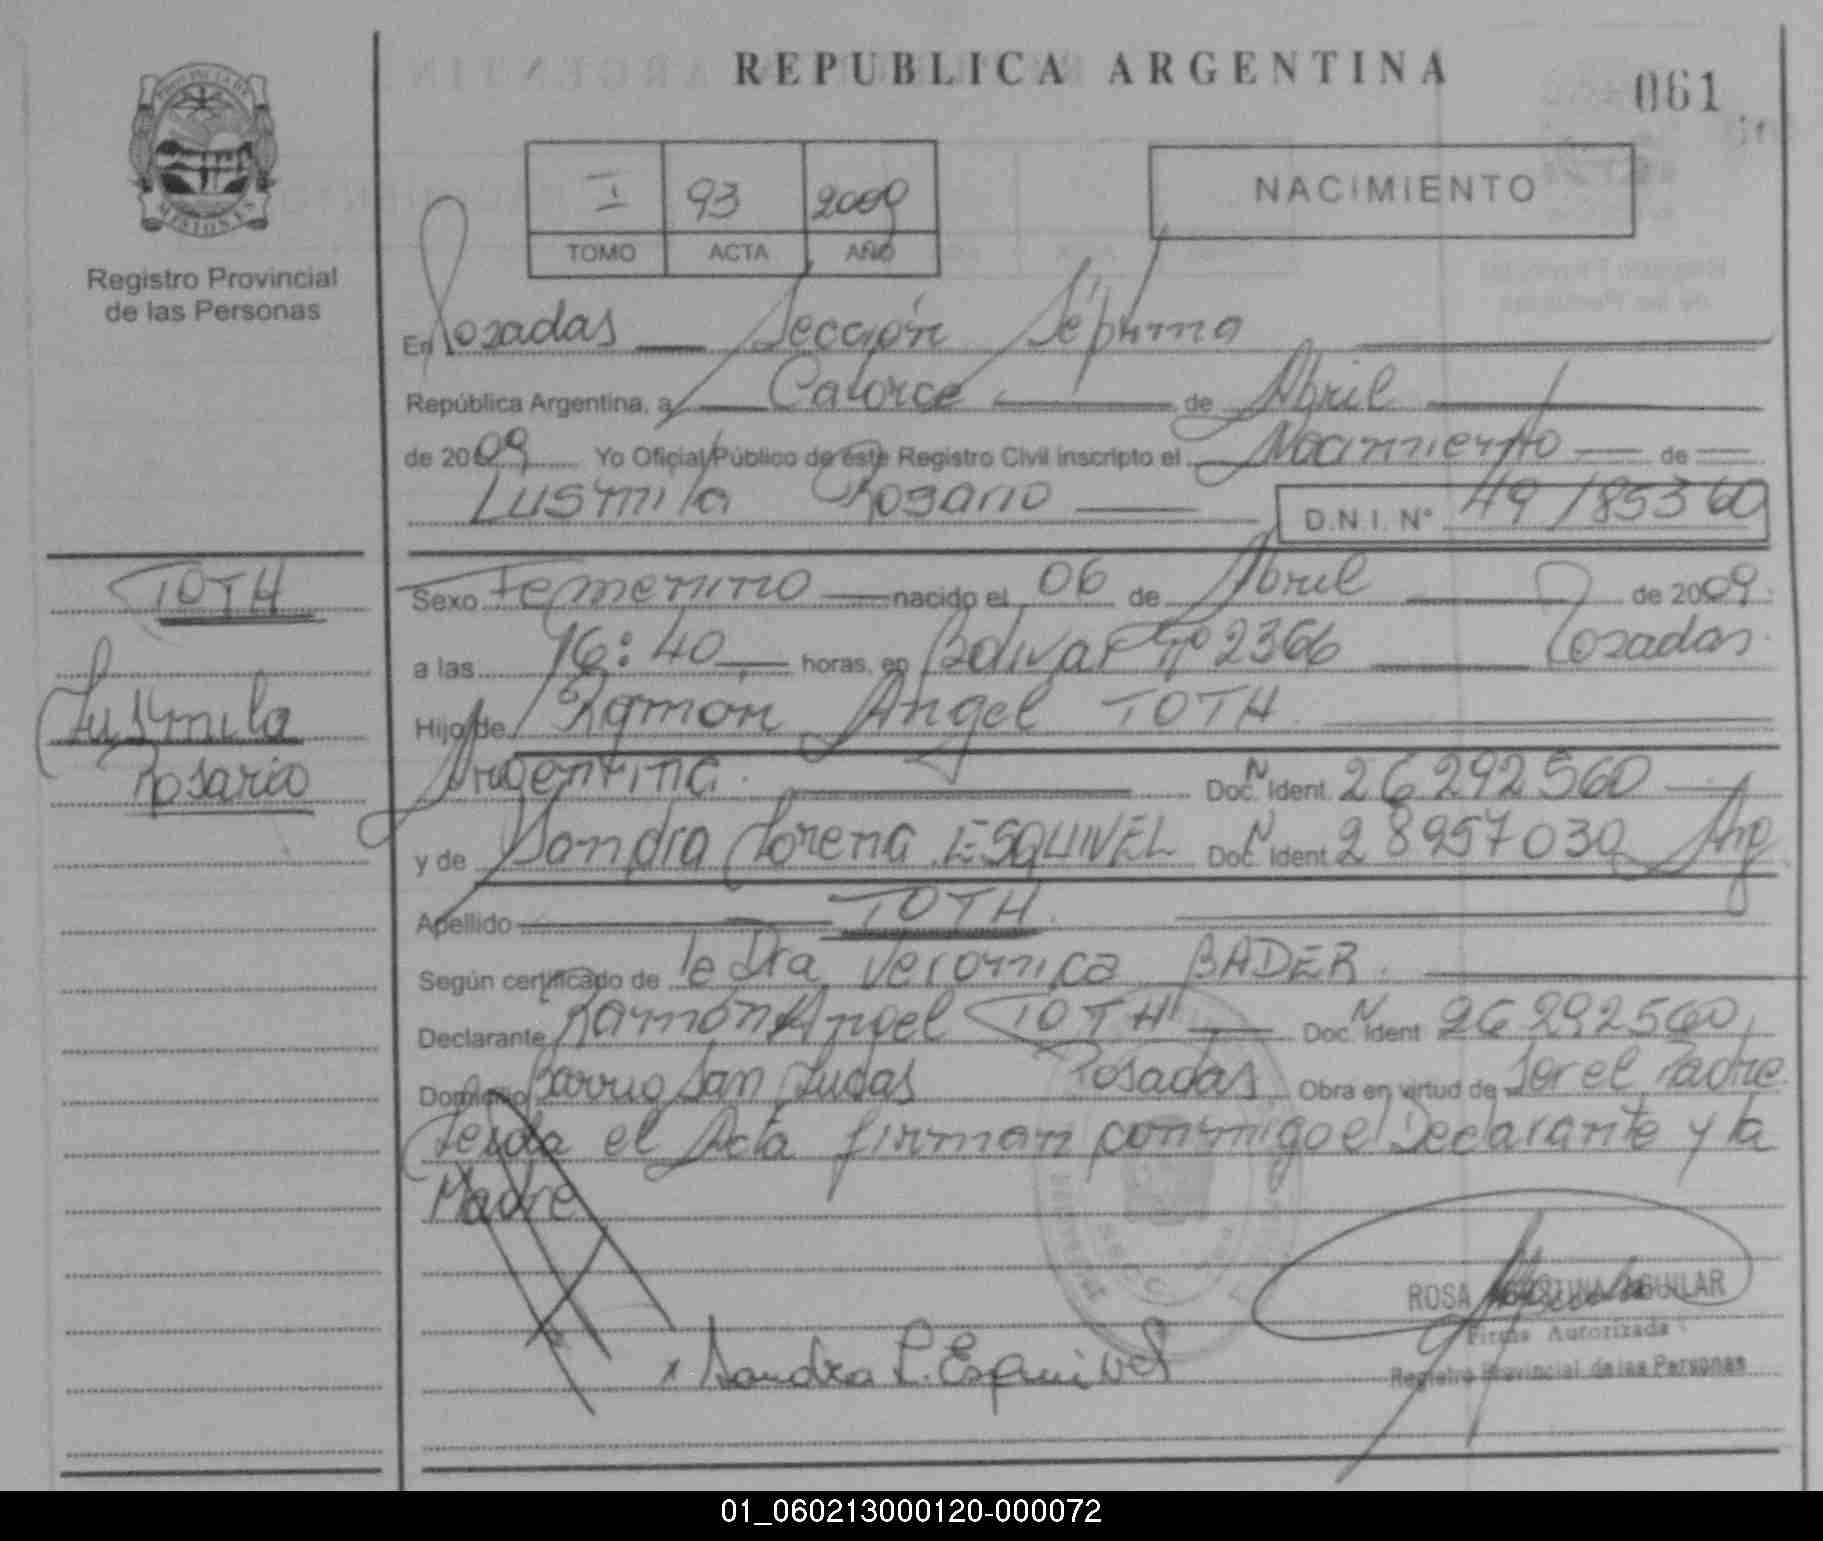 REPUBLICA ARGENTINA
061
PROVINCIA DE
MISIONES
Registro Provincial
de las Personas
I 93 2009
TOMO ACTA AÑO
NACIMIENTO
En Posadas Sección Séptima
República Argentina, a Catorce de Abril
de 2009 Yo Oficial Público de este Registro Civil inscripto el Nacimiento de
Lusmila Rosario D.N.I. Nº 49185360
TOTH
Lusmila
Rosario
Sexo Femenino nacido el 06 de Abril de 2009.
a las 16:40 horas, en Bolivar Nº 2366 Posadas.
Hijo de Ramón Angel TOTH
Argentina. Doc. N Ident. 26292560
y de Sandra Lorena ESQUIVEL Doc. N Ident. 28957030 Arg
Apellido TOTH.
Según certificado de la Dra Veronica BADER.
Declarante Ramón Angel TOTH Doc. N Ident 26292560
Domicilio Barrio San Lucas Posadas Obra en virtud de Ser el Padre
Leida el Acta firman conmigo el Declarante y la
Madre
ROSA AGUSTINA AGUILAR
Firma Autorizada
Registro Provincial de las Personas
x Sandra L. Esquivel
01_060213000120-000072